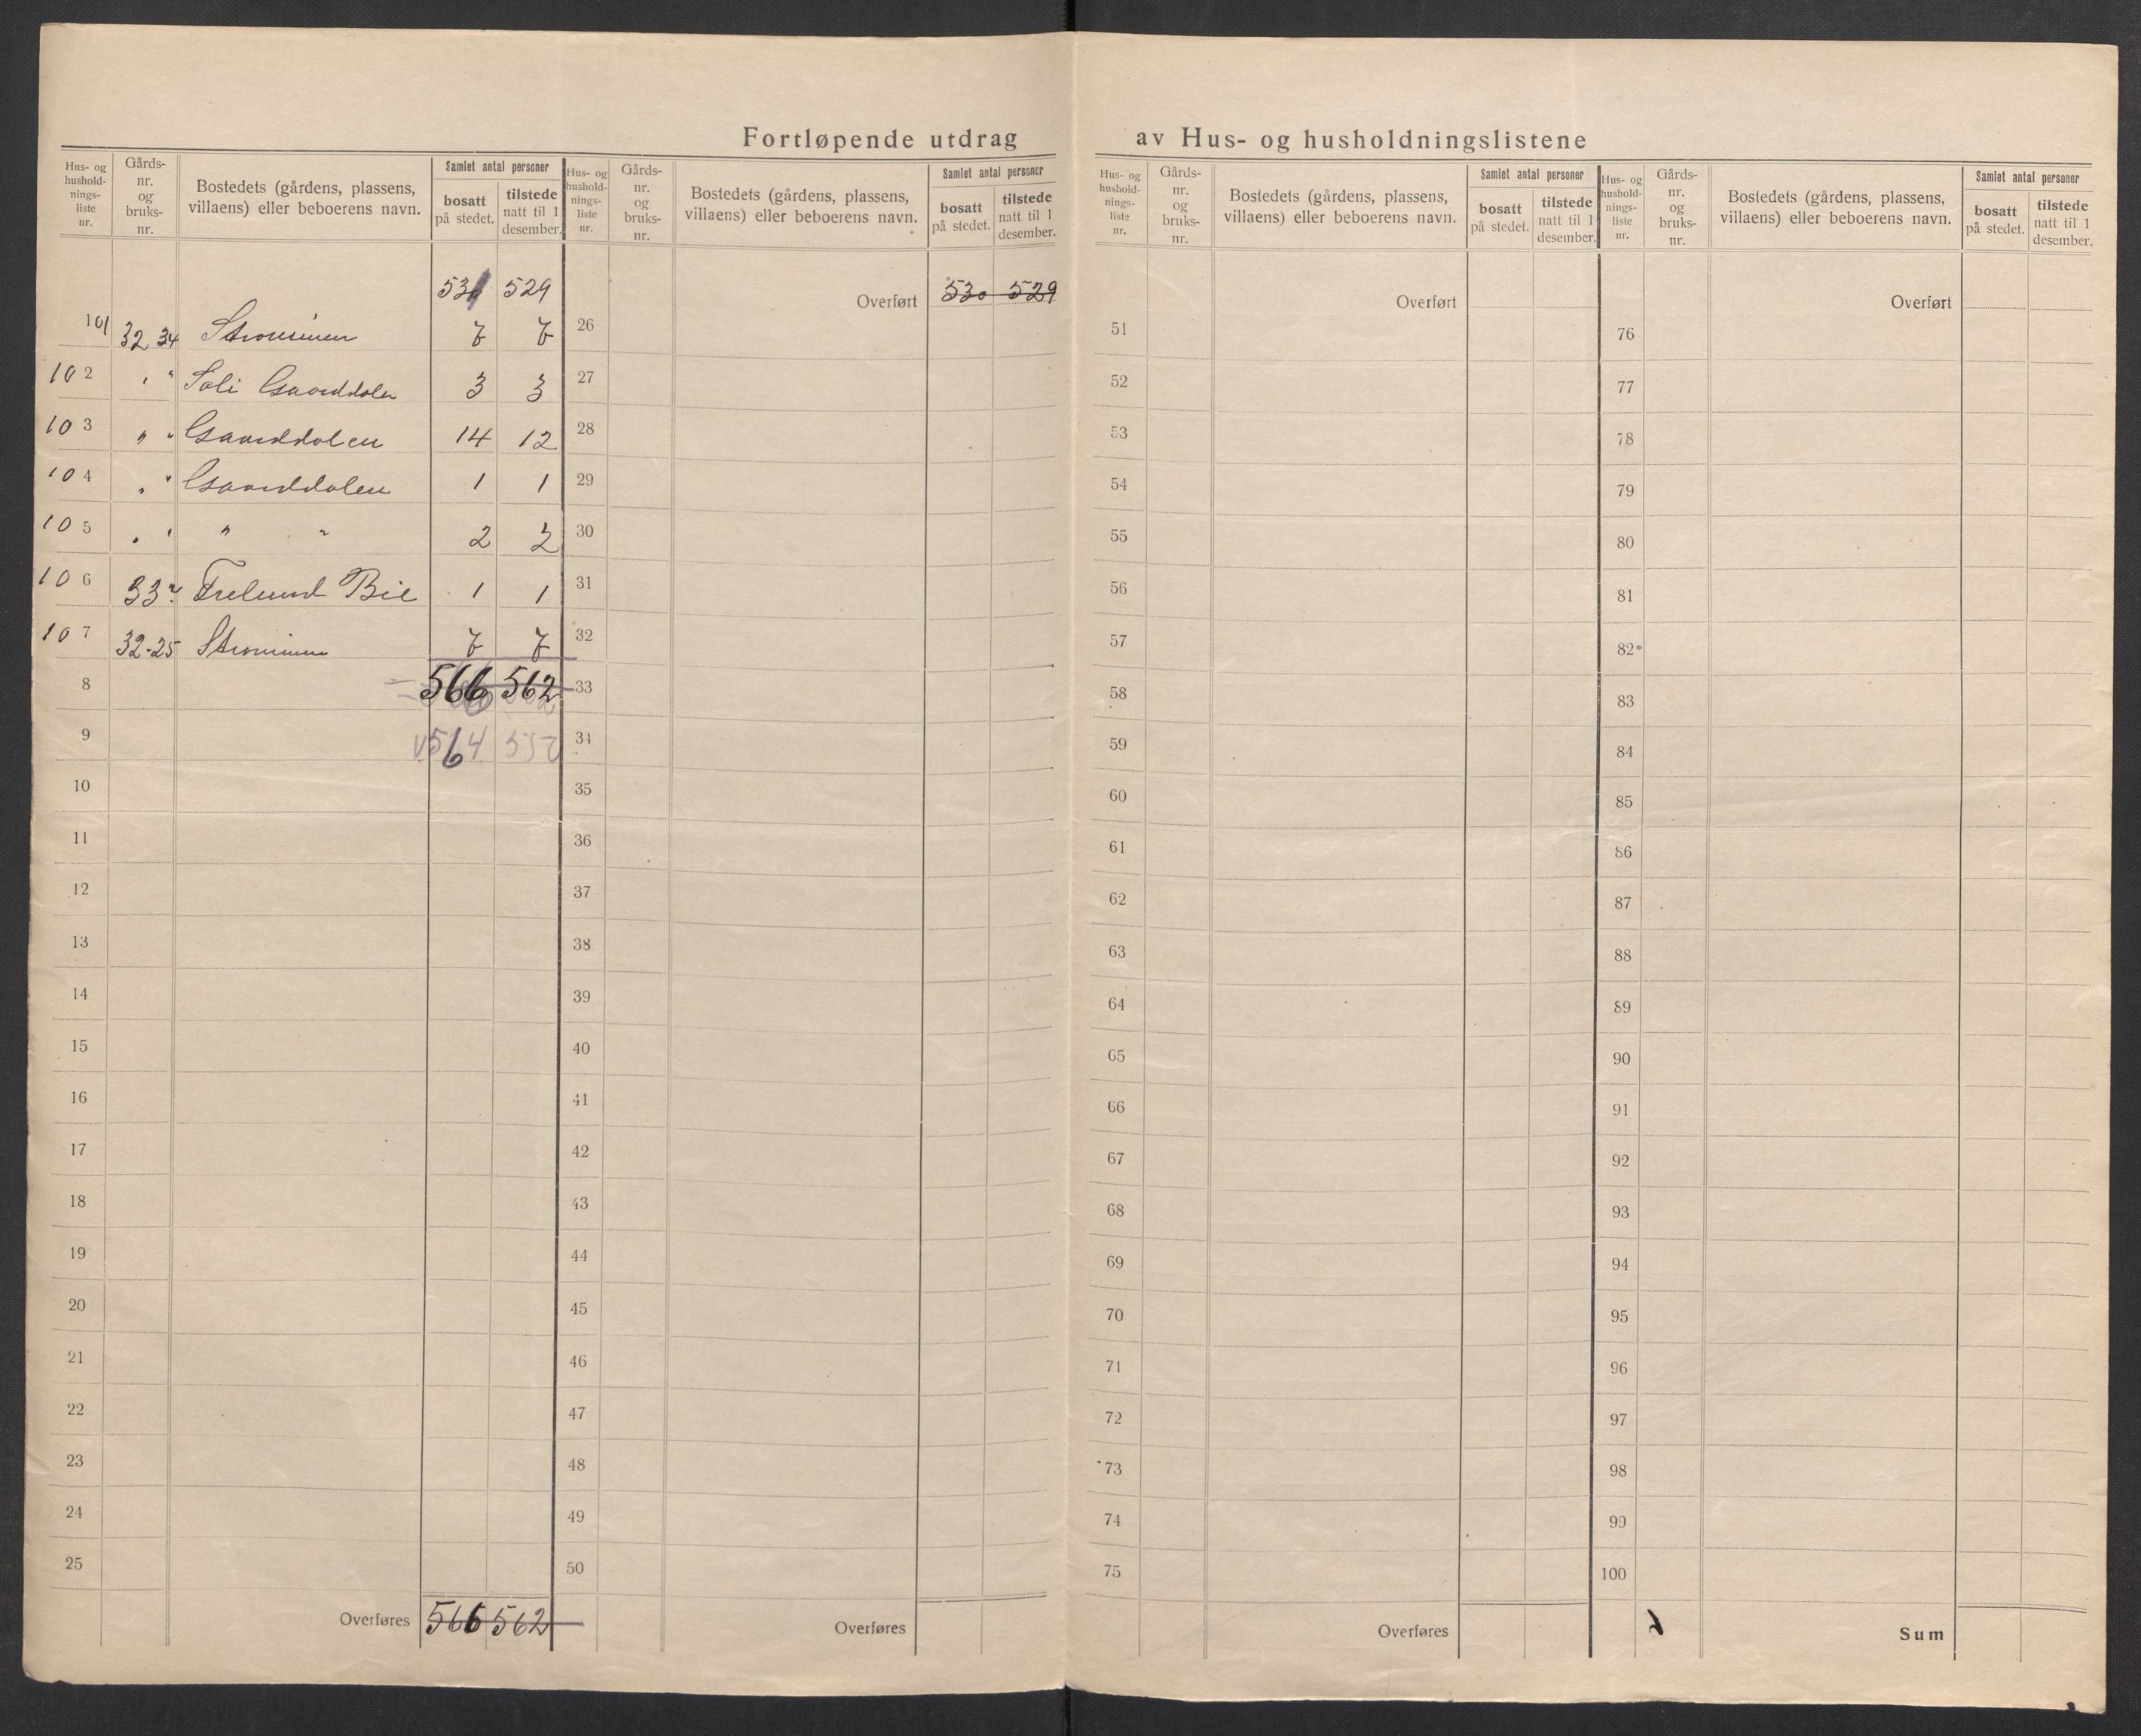 Fortløpende utdrag av Hus- og husholdningslistene
Hus- og hushold-nings-liste nr. Gårds-nr. og bruks-nr. Bostedets (gårdens, plassens, villaens) eller beboerens navn. Samlet antal personer bosatt på stedet. tilstede natt til 1 desember.
Hus- og hushold-nings-liste nr. Gårds-nr. og bruks-nr. Bostedets (gårdens, plassens, villaens) eller beboerens navn. Samlet antal personer bosatt på stedet. tilstede natt til 1 desember.
Hus- og hushold-nings-liste nr. Gårds-nr. og bruks-nr. Bostedets (gårdens, plassens, villaens) eller beboerens navn. Samlet antal personer bosatt på stedet. tilstede natt til 1 desember.
Hus- og hushold-nings-liste nr. Gårds-nr. og bruks-nr. Bostedets (gårdens, plassens, villaens) eller beboerens navn. Samlet antal personer bosatt på stedet. tilstede natt til 1 desember.
529
101 32 34 Strømmen 7 7
102 " " Soli Gaarddalen 3 3
103 " " Gaarddalen 14 12
104 " " Gaarddalen 1 1
105 " " " " 2
106 33 Bie 1 1
107 32-25 Strømmen 7 7
8 566 562
9 564
10
11
12
13
14
15
16
17
18
19
20
21
22
23
24
25
Overføres 566 562
Overført 530 529
26
27
28
29
30
31
32
33
34
35
36
37
38
39
40
41
42
43
44
45
46
47
48
49
50
Overføres
Overført
51
52
53
54
55
56
57
58
59
60
61
62
63
64
65
66
67
68
69
70
71
72
73
74
75
Overføres
Overført
76
77
78
79
80
81
82
83
84
85
86
87
88
89
90
91
92
93
94
95
96
97
98
99
100
Sum